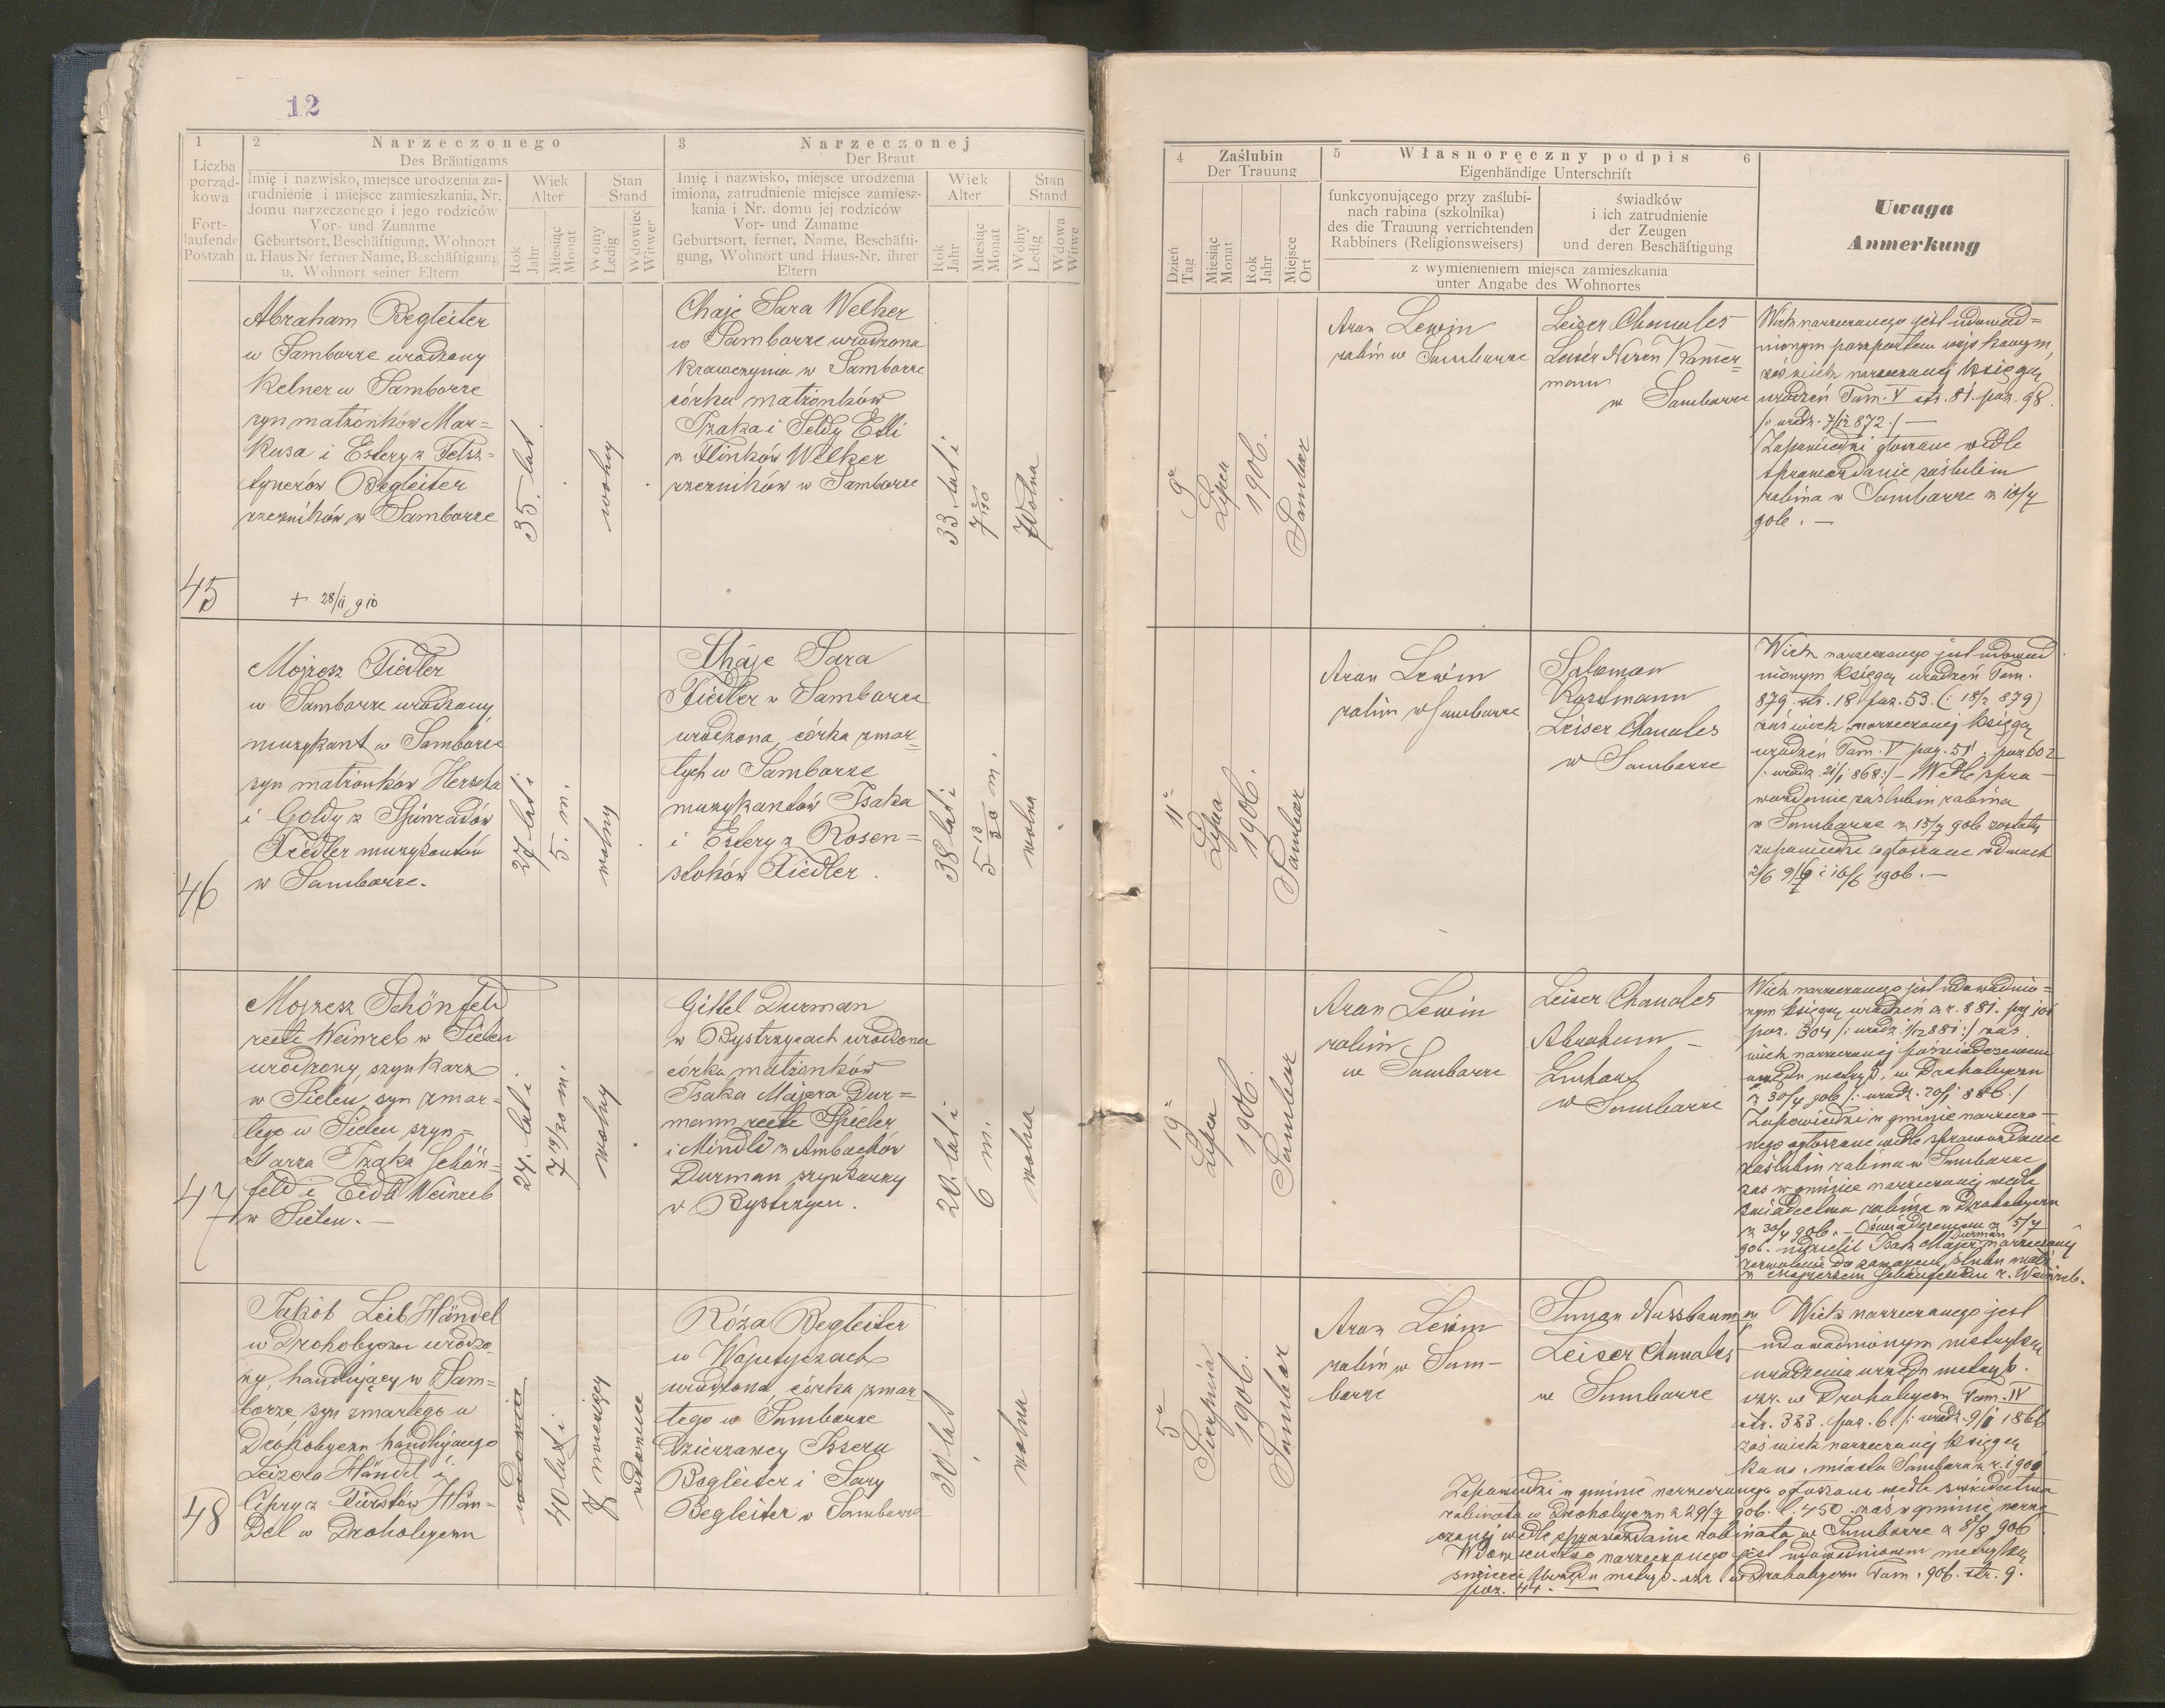 12
1
Liczba
porząd-
kowa
Fort-
laufende
Postzahl
2 Narzeczonego
Des Bräutigams
Imię i nazwisko, miejsce urodzenia za-
trudnienie i miejsce zamieszkania, Nr.
domu narzeczonego i jego rodziców
Vor- und Zuname
Geburtsort, Beschäftigung, Wohnort
u. Haus Nr ferner Name, Beschäftigung
u. Wohnort seiner Eltern
Wiek
Alter
Rok
Jahr
Miesiąc
Monat
Stan
Stand
Wolny
Ledig
Wdowiec
Witwer
3 Narzeczonej
Der Braut
Imię i nazwisko, miejsce urodzenia
imiona, zatrudnienie miejsce zamiesz-
kania i Nr. domu jej rodziców
Vor- und Zuname
Geburtsort, ferner, Name, Beschäfti-
gung, Wohnort und Haus-Nr. ihrer
Eltern
Wiek
Alter
Rok
Jahr
Miesiąc
Monat
Stan
Stand
Wolny
Ledig
Wdowa
Witwe
4 Zaślubin
Der Trauung
Dzień
Tag
Miesiąc
Monat
Rok
Jahr
Miejsce
Ort
5 Własnoręczny podpis 6
Eigenhändige Unterschrift
funkcyonującego przy zaślubi-
nach rabina (szkolnika)
des die Trauung verrichtenden
Rabbiners (Religionsweisers)
świadków
i ich zatrudnienie
der Zeugen
und deren Beschäftigung
z wymienieniem miejsca zamieszkania
unter Angabe des Wohnortes
Uwaga
Anmerkung
45
Abraham Begleiter
w Samborze urodzony
Kelner w Samborze
syn małżonków Mar=
kusa i Estery z Felsz=
tynerów Begleiter
rzezników w Samborze
+ 28/11 910
35. lat
wolny
Chaje Sara Welker
w Samborze urodzona
Krawczynia w Samborze
córka małżonków
Izaka i Seldy Etli
z Flinków Welker
rzezników w Samborze
33. lat i
7
Wolna
9
Lipca
1906.
Sambor
Aron Lewin
rabin w Samborze
Leizer Chanales
Leisér Nizen Kamer=
mann
w Samborze
Wiek narzeczonego jest udowad=
nionym paszportem wojskowym,
zaś wiek narzeczonej księgą
urodzeń Tom. V str. 81. poz. 98.
/: urodz. 7/12 872 :/ —
Zapowiedzi głoszone wedle
sprawozdanie zaślubin
rabina w Samborze z 10/7
906. —
46
Mojżesz Fiedler
w Samborze urodzony
muzykant w Samborze
syn małżonków Herscha
i Goldy z Spinradów
Fiedler muzykantów
w Samborze.
27 lat i
5. m.
wolny
Chaje Sara
Fiedler w Samborze
urodzona, córka zmar=
łych w Samborze
muzykantów Isaka
i Estery z Rosen=
stoków Fiedler.
38 lat i
5 10/30 m.
wolna
11
Lipca
1906.
Sambor
Aron Lewin
rabin w Samborze
Salomon
Kossmann
Leiser Chanales
w Samborze
Wiek narzeczonego jest udowod
nionym księgą urodzeń Tom.
879. str. 18 poz. 53. (: 18/2 879)
zaś wiek narzeczonej księgą
urodzeń Tom. V pag. 51. poz 602
/: urodz. 21/1 868 :/ – Wedle spra–
wozdanie zaślubin rabina
w Samborze z 15/7 906 zostały
zapowiedzi ogłoszone w dniach
2/6 9/6 i 16/6 906. —
47
Mojżesz Schönfeld
recte Weinreb w Sielcu
urodzony, szynkarz
w Sielcu, syn zmar=
łego w Sielcu szyn=
karza Izaka Schön=
feld i Eidli Weinreb
w Sielcu. —
24. lat i
7 19/30 m.
wolny
Gittel Durman
w Bystrzycach urodzona
córka małżonków
Isaka Majera Dur=
mann recte Spieler
i Mindli z Ambachów
Durman szynkarzy
w Bystrzycu.
20. lat i
6 m.
wolna
19
Lipca
1906.
Sambor
Aron Lewin
rabin
w Samborze
Leiser Chanales
Abraham
w Samborze
Wiek narzeczonego jest udowodnio=
nym księgą urodzeń z r. 881. pag 101
poz. 304 /: urodz. 1/12 881 :/ zaś
wiek narzeczonej poświadczeniem
urzędu metryk. w Drohobyczu
z 30/4 906 /: urodz. 20/1 886. /
Zapowiedzi w gminie narzeczo–
nego ogłoszone wedle sprawozdanie
zaślubin rabina w Samborze
zaś w gminie narzeczonej wedle
świadectwa rabina w Drohobyczu
z 30/4 906. – Oświadczeniem z 5/7
906. udzielił Isak Majer Durman narzeczonej
zezwolenie do zawarcia ślubu małż.
z Mojżeszem Schönfeldem r. Weinreb.
48
Jakób Leib Händel
w Drohobyczu urodzo
ny, handlujący w Sam=
borze, syn zmarłego w
Drohobyczu handlującego
Leizora Händel i
Cipry z Fürstów Hän-
del w Drohobyczu
40 lat i
7 miesięcy
wdowiec
Róża Begleiter
w Wojutyczach
urodzona, córka zmar
łego w Samborze
dzierżawcy Issera
Begleiter i Sary
Begleiter w Samborze
30 lat
wolna
5
Sierpnia
1906.
Sambor
Aron Lewin
rabin w Sam–
borze
Nussbaum
Leiser Chanales
w Samborze
Wiek narzeczonego jest
udowodnionym metryką
urodzenia urzędu metryk.
izr. w Drohobyczu Tom. IV
str. 333. poz. 6. /: urodz. 9/1 1866
zaś wiek narzeczonej księgą
kons. miasta Sambora z r. 1900
Zapowiedzi w gminie narzeczonego ogłoszone wedle świadectwa
rabinata w Drohobyczu z 29/7 906. l. 450. zaś w gminie narze
czonej wedle sprawozdanie rabinata w Samborze z 8/8 906
Wdowieństwo narzeczonego jest udowodnionem metryką
śmierci urzędu metryk. izr. w Drohobyczu Tom. 906. str. 9.
poz. 44. —